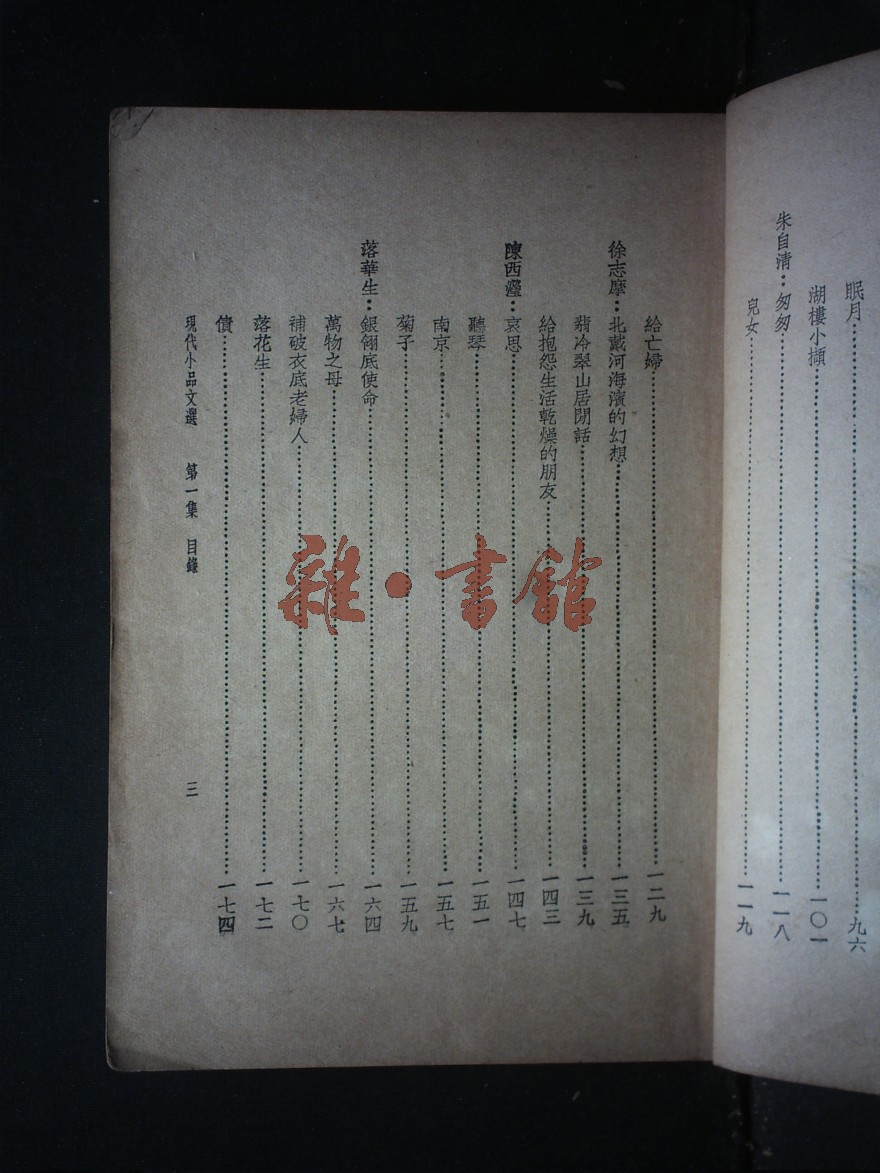 眠月……九六
湖樓小擷……一〇一
朱自清：匆匆……一一八
兒女……一一九
給亡婦……一二九
徐志摩：北戴河海濱的幻想……一三五
翡冷翠山居閒話……一三九
給抱怨生活乾燥的朋友……一四三
陳西瀅：哀思……一四七
聽琴……一五一
南京……一五七
菊子……一五九
落華生：銀翎底使命……一六四
萬物之母……一六七
補破衣底老婦人……一七〇
落花生……一七二
債……一七四
現代小品文選　第一集　目錄　三
雜·書館